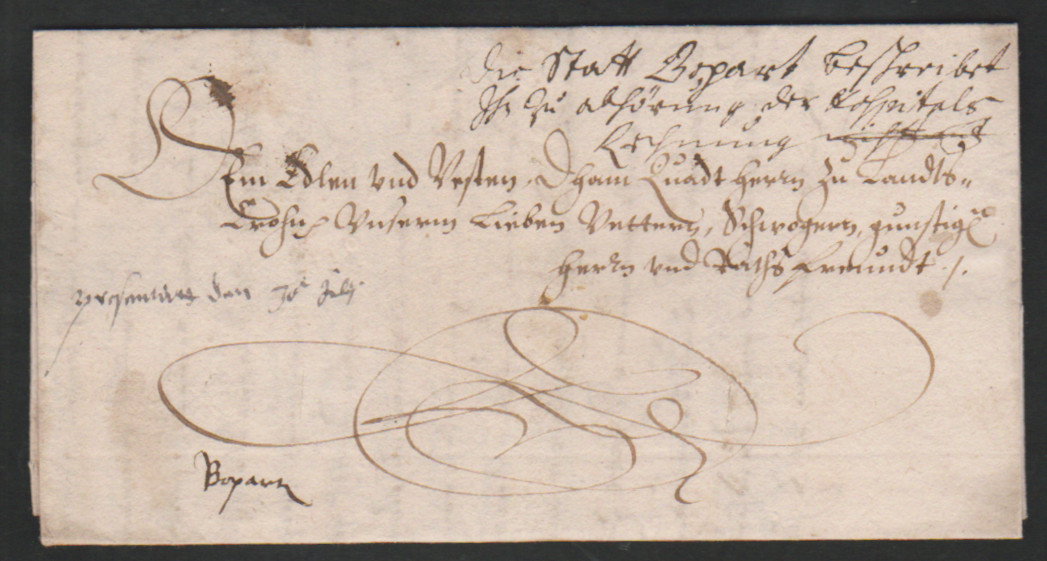 Die Statt Bopart beschreibet
Ihr zu abhörung der Hospitals
Rechnung
Dem Edlen vnd Vesten, Dham Quadt Herrn zu Landts-
Crohn, Vnserm Lieben Vettern, Schwagern, gunstig
Herrn vnd Raths freundt ./.
presentirt den July
Bopart